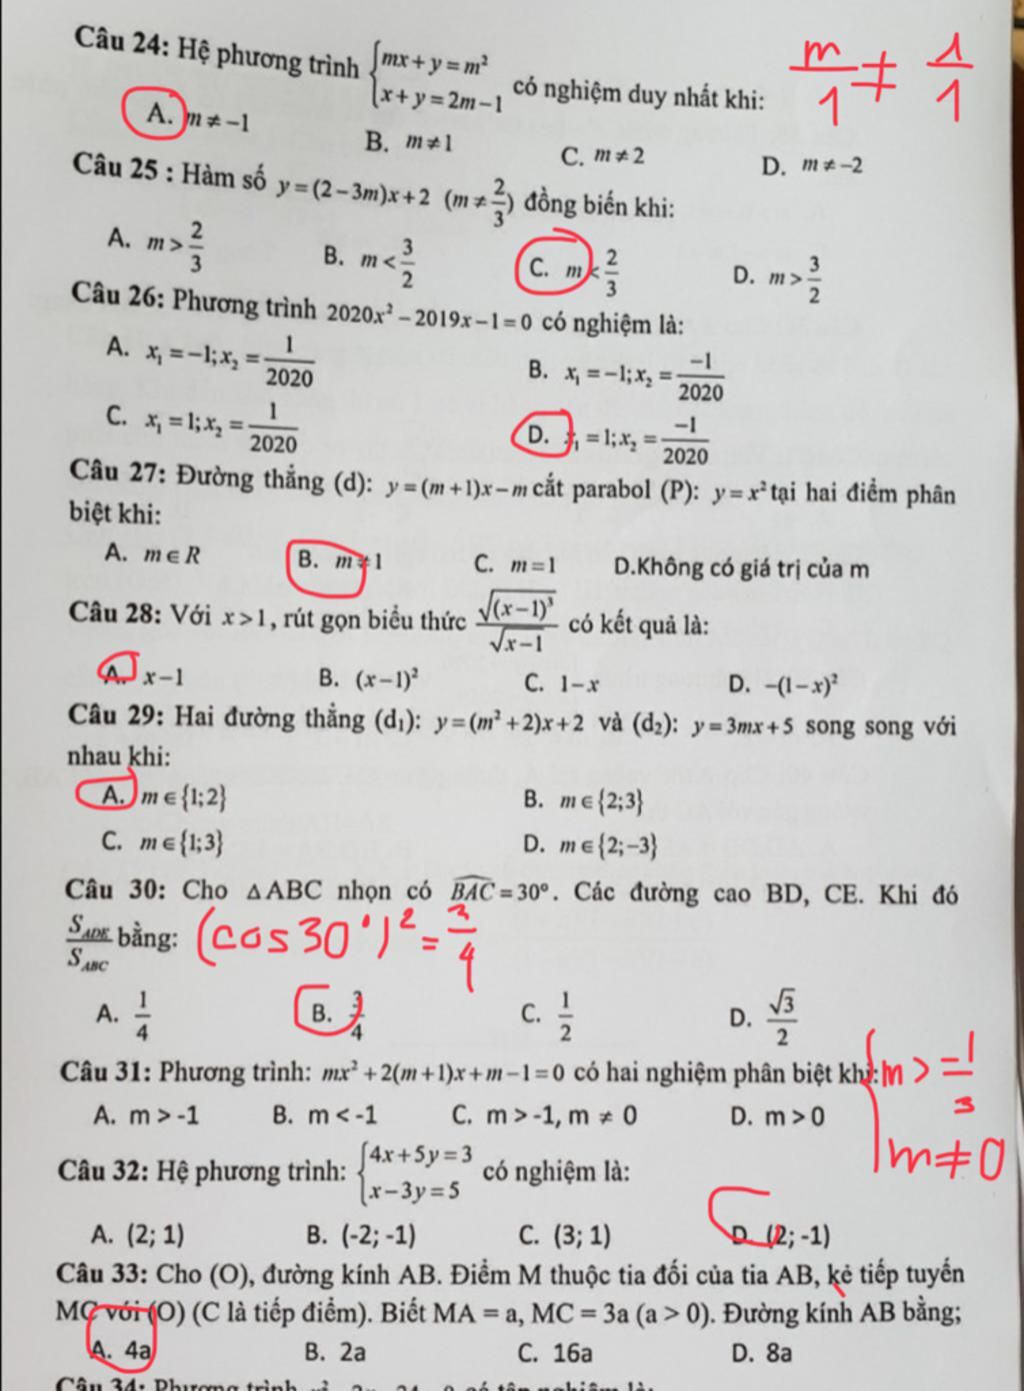 Câu 24: Hệ phương trình {mx + y = m²; x + y = 2m − 1 có nghiệm duy nhất khi:
m/1 ≠ 1/1
A. m ≠ −1 B. m ≠ 1 C. m ≠ 2 D. m ≠ −2
Câu 25 : Hàm số y = (2 − 3m)x + 2 (m ≠ 2/3) đồng biến khi:
A. m > 2/3 B. m < 3/2 C. m < 2/3 D. m > 3/2
Câu 26: Phương trình 2020x² − 2019x − 1 = 0 có nghiệm là:
A. x₁ = −1; x₂ = 1/2020 B. x₁ = −1; x₂ = −1/2020
C. x₁ = 1; x₂ = 1/2020 D. x₁ = 1; x₂ = −1/2020
Câu 27: Đường thẳng (d): y = (m + 1)x − m cắt parabol (P): y = x² tại hai điểm phân
biệt khi:
A. m ∈ R B. m ≠ 1 C. m = 1 D.Không có giá trị của m
Câu 28: Với x > 1, rút gọn biểu thức √(x−1)³/√x−1 có kết quả là:
A. x − 1 B. (x − 1)² C. 1 − x D. −(1 − x)²
Câu 29: Hai đường thẳng (d₁): y = (m² + 2)x + 2 và (d₂): y = 3mx + 5 song song với
nhau khi:
A. m ∈ {1;2} B. m ∈ {2;3}
C. m ∈ {1;3} D. m ∈ {2;−3}
Câu 30: Cho △ABC nhọn có BAC = 30°. Các đường cao BD, CE. Khi đó
S_ADE/S_ABC bằng: (cos30°)² = 3/4
A. 1/4 B. 3/4 C. 1/2 D. √3/2
Câu 31: Phương trình: mx² + 2(m + 1)x + m − 1 = 0 có hai nghiệm phân biệt khi: {m > −1/3
A. m > -1 B. m < -1 C. m > -1, m ≠ 0 D. m > 0
m ≠ 0
Câu 32: Hệ phương trình: {4x + 5y = 3; x − 3y = 5 có nghiệm là:
A. (2; 1) B. (-2; -1) C. (3; 1) D. (2; -1)
Câu 33: Cho (O), đường kính AB. Điểm M thuộc tia đối của tia AB, kẻ tiếp tuyến
MC với (O) (C là tiếp điểm). Biết MA = a, MC = 3a (a > 0). Đường kính AB bằng;
A. 4a B. 2a C. 16a D. 8a
Câu 34: Phương trình